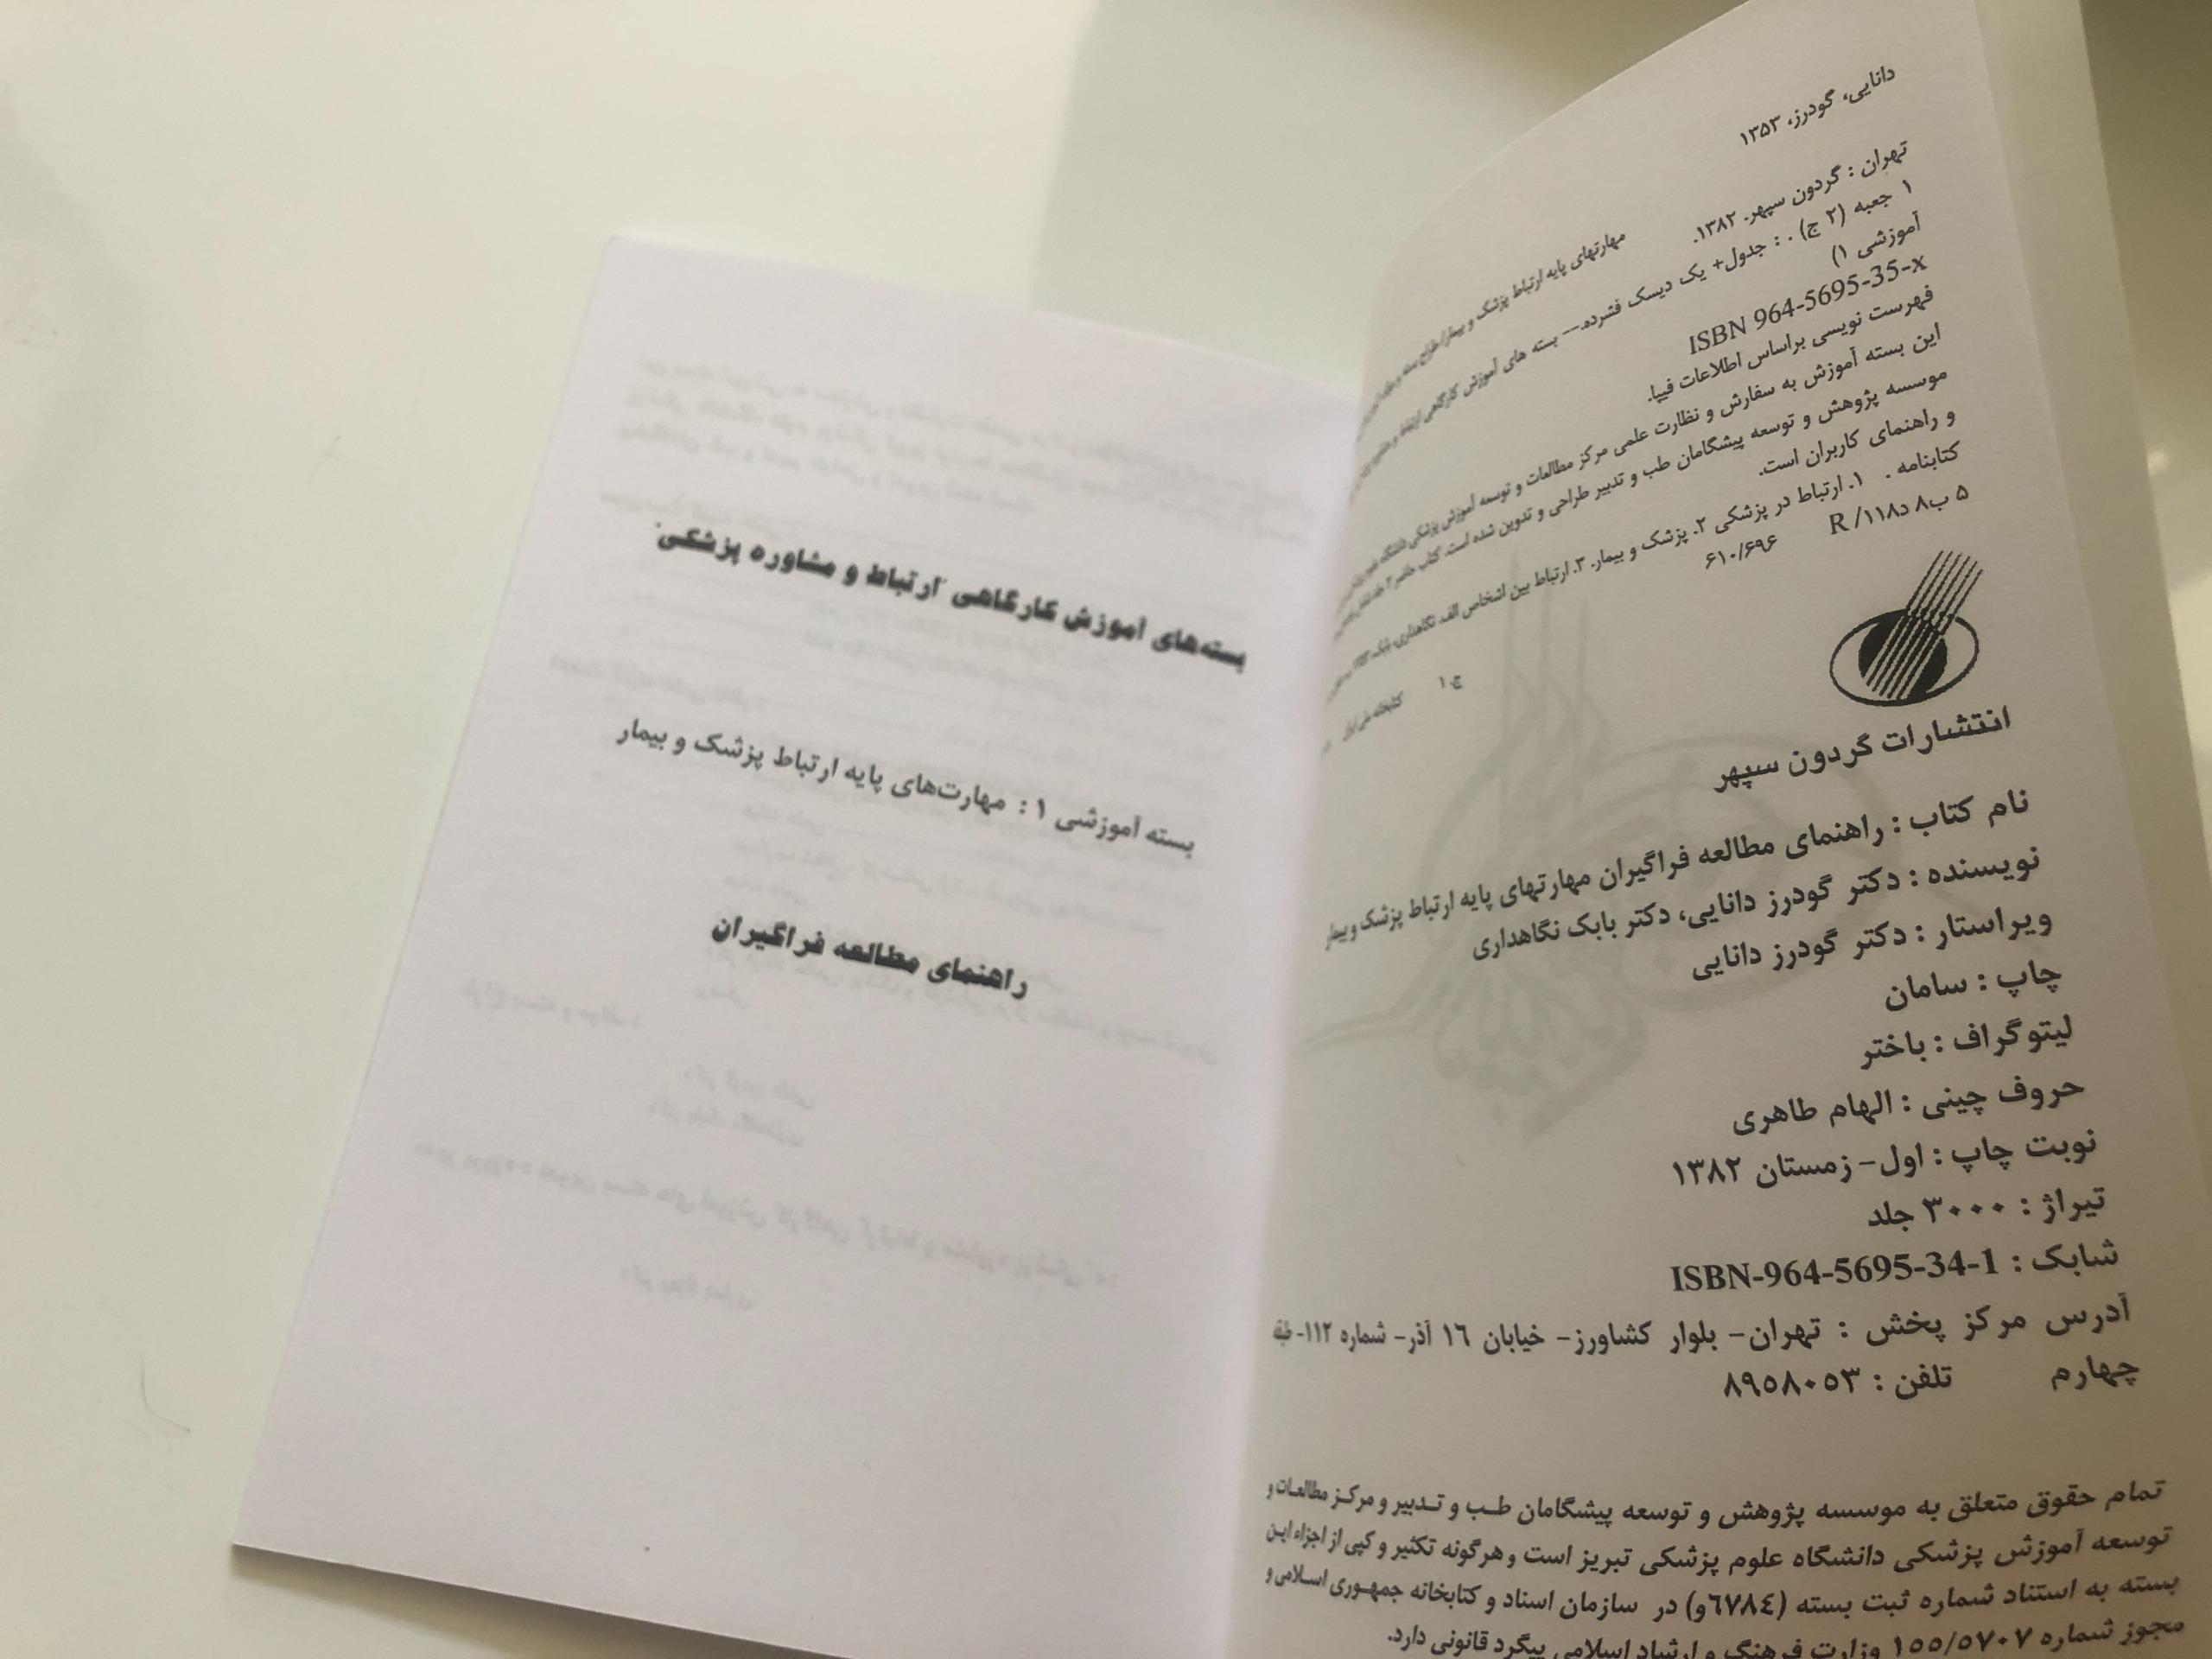 دانایی، گودرز، ۱۳۵۳
مهارتهای پایه ارتباط پزشک و بیمار/ طراح بسته و
تهران : گردون سپهر. ۱۳۸۲.
۱ جعبه (۲ ج) . : جدول+ یک دیسک فشرده.— بسته های آموزش کارگاهی ارتباط و
آموزشی ۱)
ISBN 964-5695-35-x
فهرست نویسی براساس اطلاعات فیپا.
این بسته آموزش به سفارش و نظارت علمی مرکز مطالعات و توسعه آموزش پزشکی دانشگاه علوم
موسسه پژوهش و توسعه پیشگامان طب و تدبیر طراحی و تدوین شده است. کتاب حاضر ۲ جلد
و راهنمای کاربران است.
کتابنامه .
۱. ارتباط در پزشکی ۲. پزشک و بیمار. ۳. ارتباط بین اشخاص الف. نگاهداری، بابک،
۵ ب۸ د۱۱۸/ R
۶۱۰/۶۹۶
ج. ۱
کتابخانه ملی ایران
انتشارات گردون سپهر
نام کتاب : راهنمای مطالعه فراگیران مهارتهای پایه ارتباط پزشک و بیمار
نویسنده : دکتر گودرز دانایی، دکتر بابک نگاهداری
ویراستار : دکتر گودرز دانایی
چاپ : سامان
لیتوگراف : باختر
حروف چینی : الهام طاهری
نوبت چاپ : اول- زمستان ۱۳۸۲
تیراژ : ۳۰۰۰ جلد
شابک : ISBN-964-5695-34-1
آدرس مرکز پخش : تهران- بلوار کشاورز- خیابان ١٦ آذر- شماره ۱۱۲- طبقه
چهارم تلفن : ۸۹۵۸۰۵۳
تمام حقوق متعلق به موسسه پژوهش و توسعه پیشگامان طب و تدبیر و مرکز مطالعات و
توسعه آموزش پزشکی دانشگاه علوم پزشکی تبریز است و هرگونه تکثیر و کپی از اجزاء این
بسته به استناد شماره ثبت بسته (٦٧٨٤و) در سازمان اسناد و کتابخانه جمهوری اسلامی و
مجوز شماره ۱۵۵/۵۷۰۷ وزارت فرهنگ و ارشاد اسلامی پیگرد قانونی دارد.
بسته‌های آموزش کارگاهی "ارتباط و مشاوره پزشکی"
بسته آموزشی ۱ : مهارت‌های پایه ارتباط پزشک و بیمار
راهنمای مطالعه فراگیران